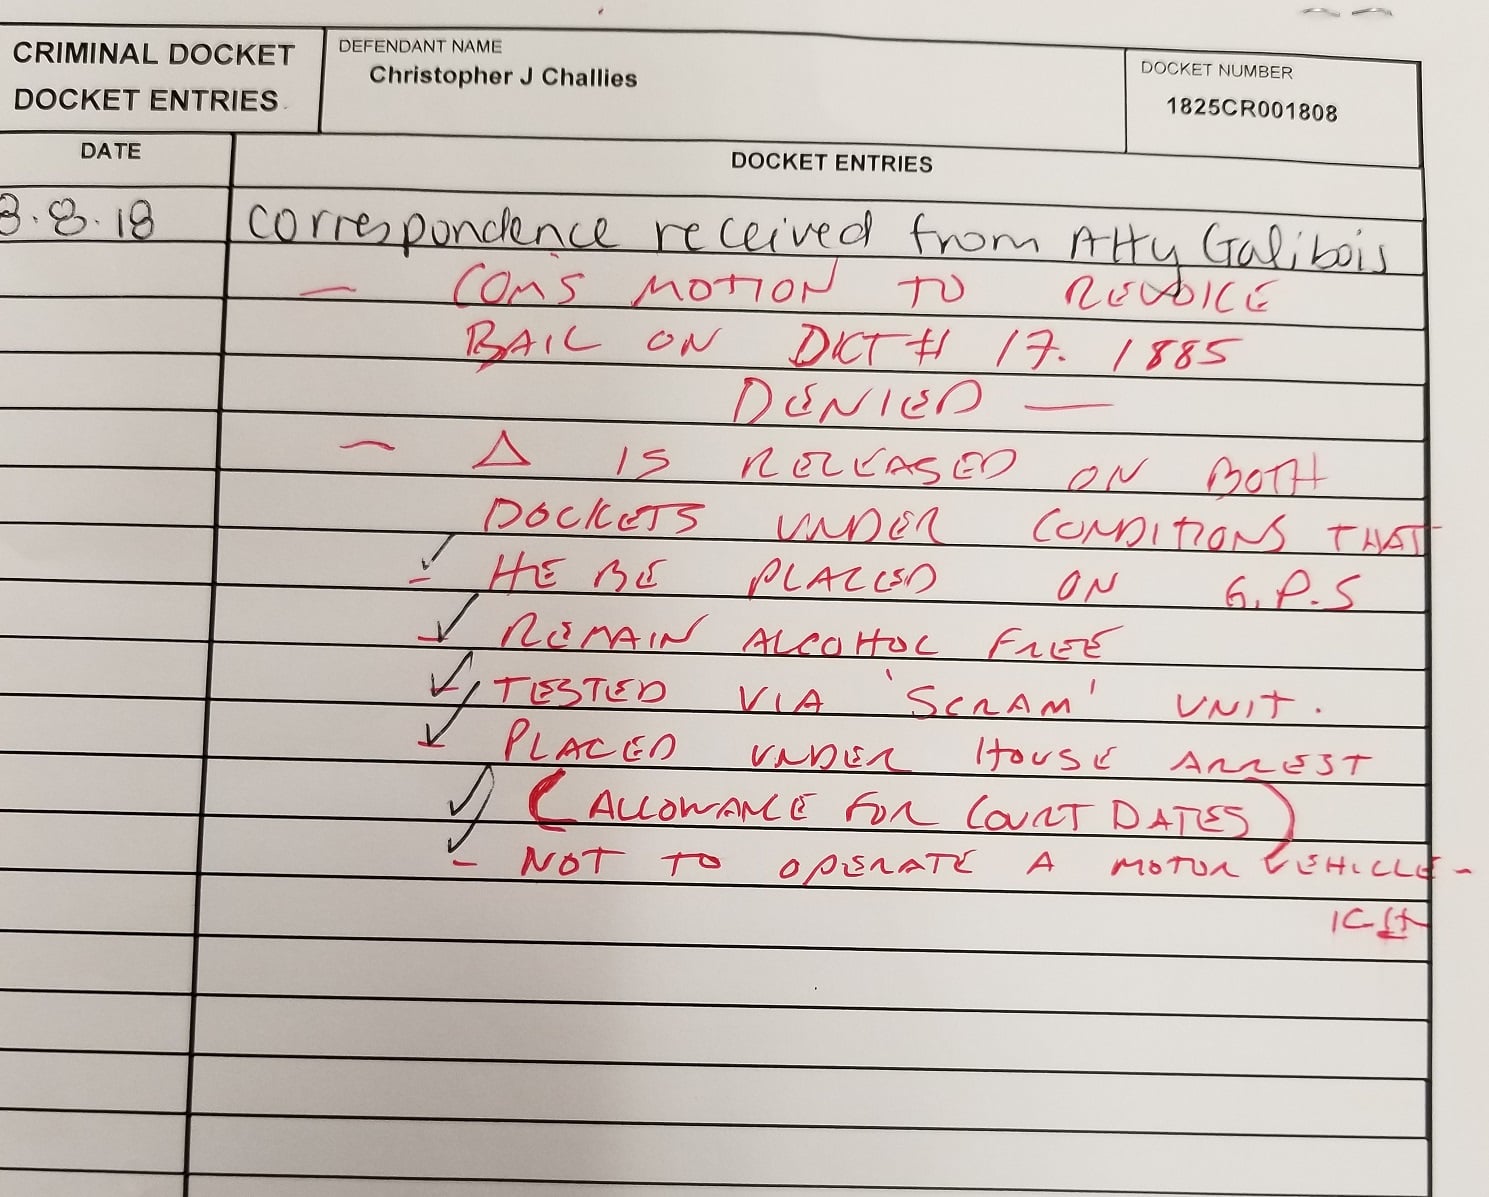 CRIMINAL DOCKET
DOCKET ENTRIES
DEFENDANT NAME
Christopher J Challies
DOCKET NUMBER
1825CR001808
DATE
DOCKET ENTRIES
8.8.18 correspondence received from Atty Galibois
— COM'S MOTION TO REVOICE
BAIL ON DKT # 17. 1885
DENIED —
— Δ IS RELEASED ON BOTH
DOCKETS UNDER CONDITIONS THAT
✓ - HE BE PLACED ON G.P.S
✓ - REMAIN ALCOHOL FREE
✓ - TESTED VIA 'SCRAM' UNIT.
✓ - PLACED UNDER HOUSE ARREST
✓ (ALLOWANCE FOR COURT DATES)
✓ - NOT TO OPERATE A MOTOR VEHICLE -